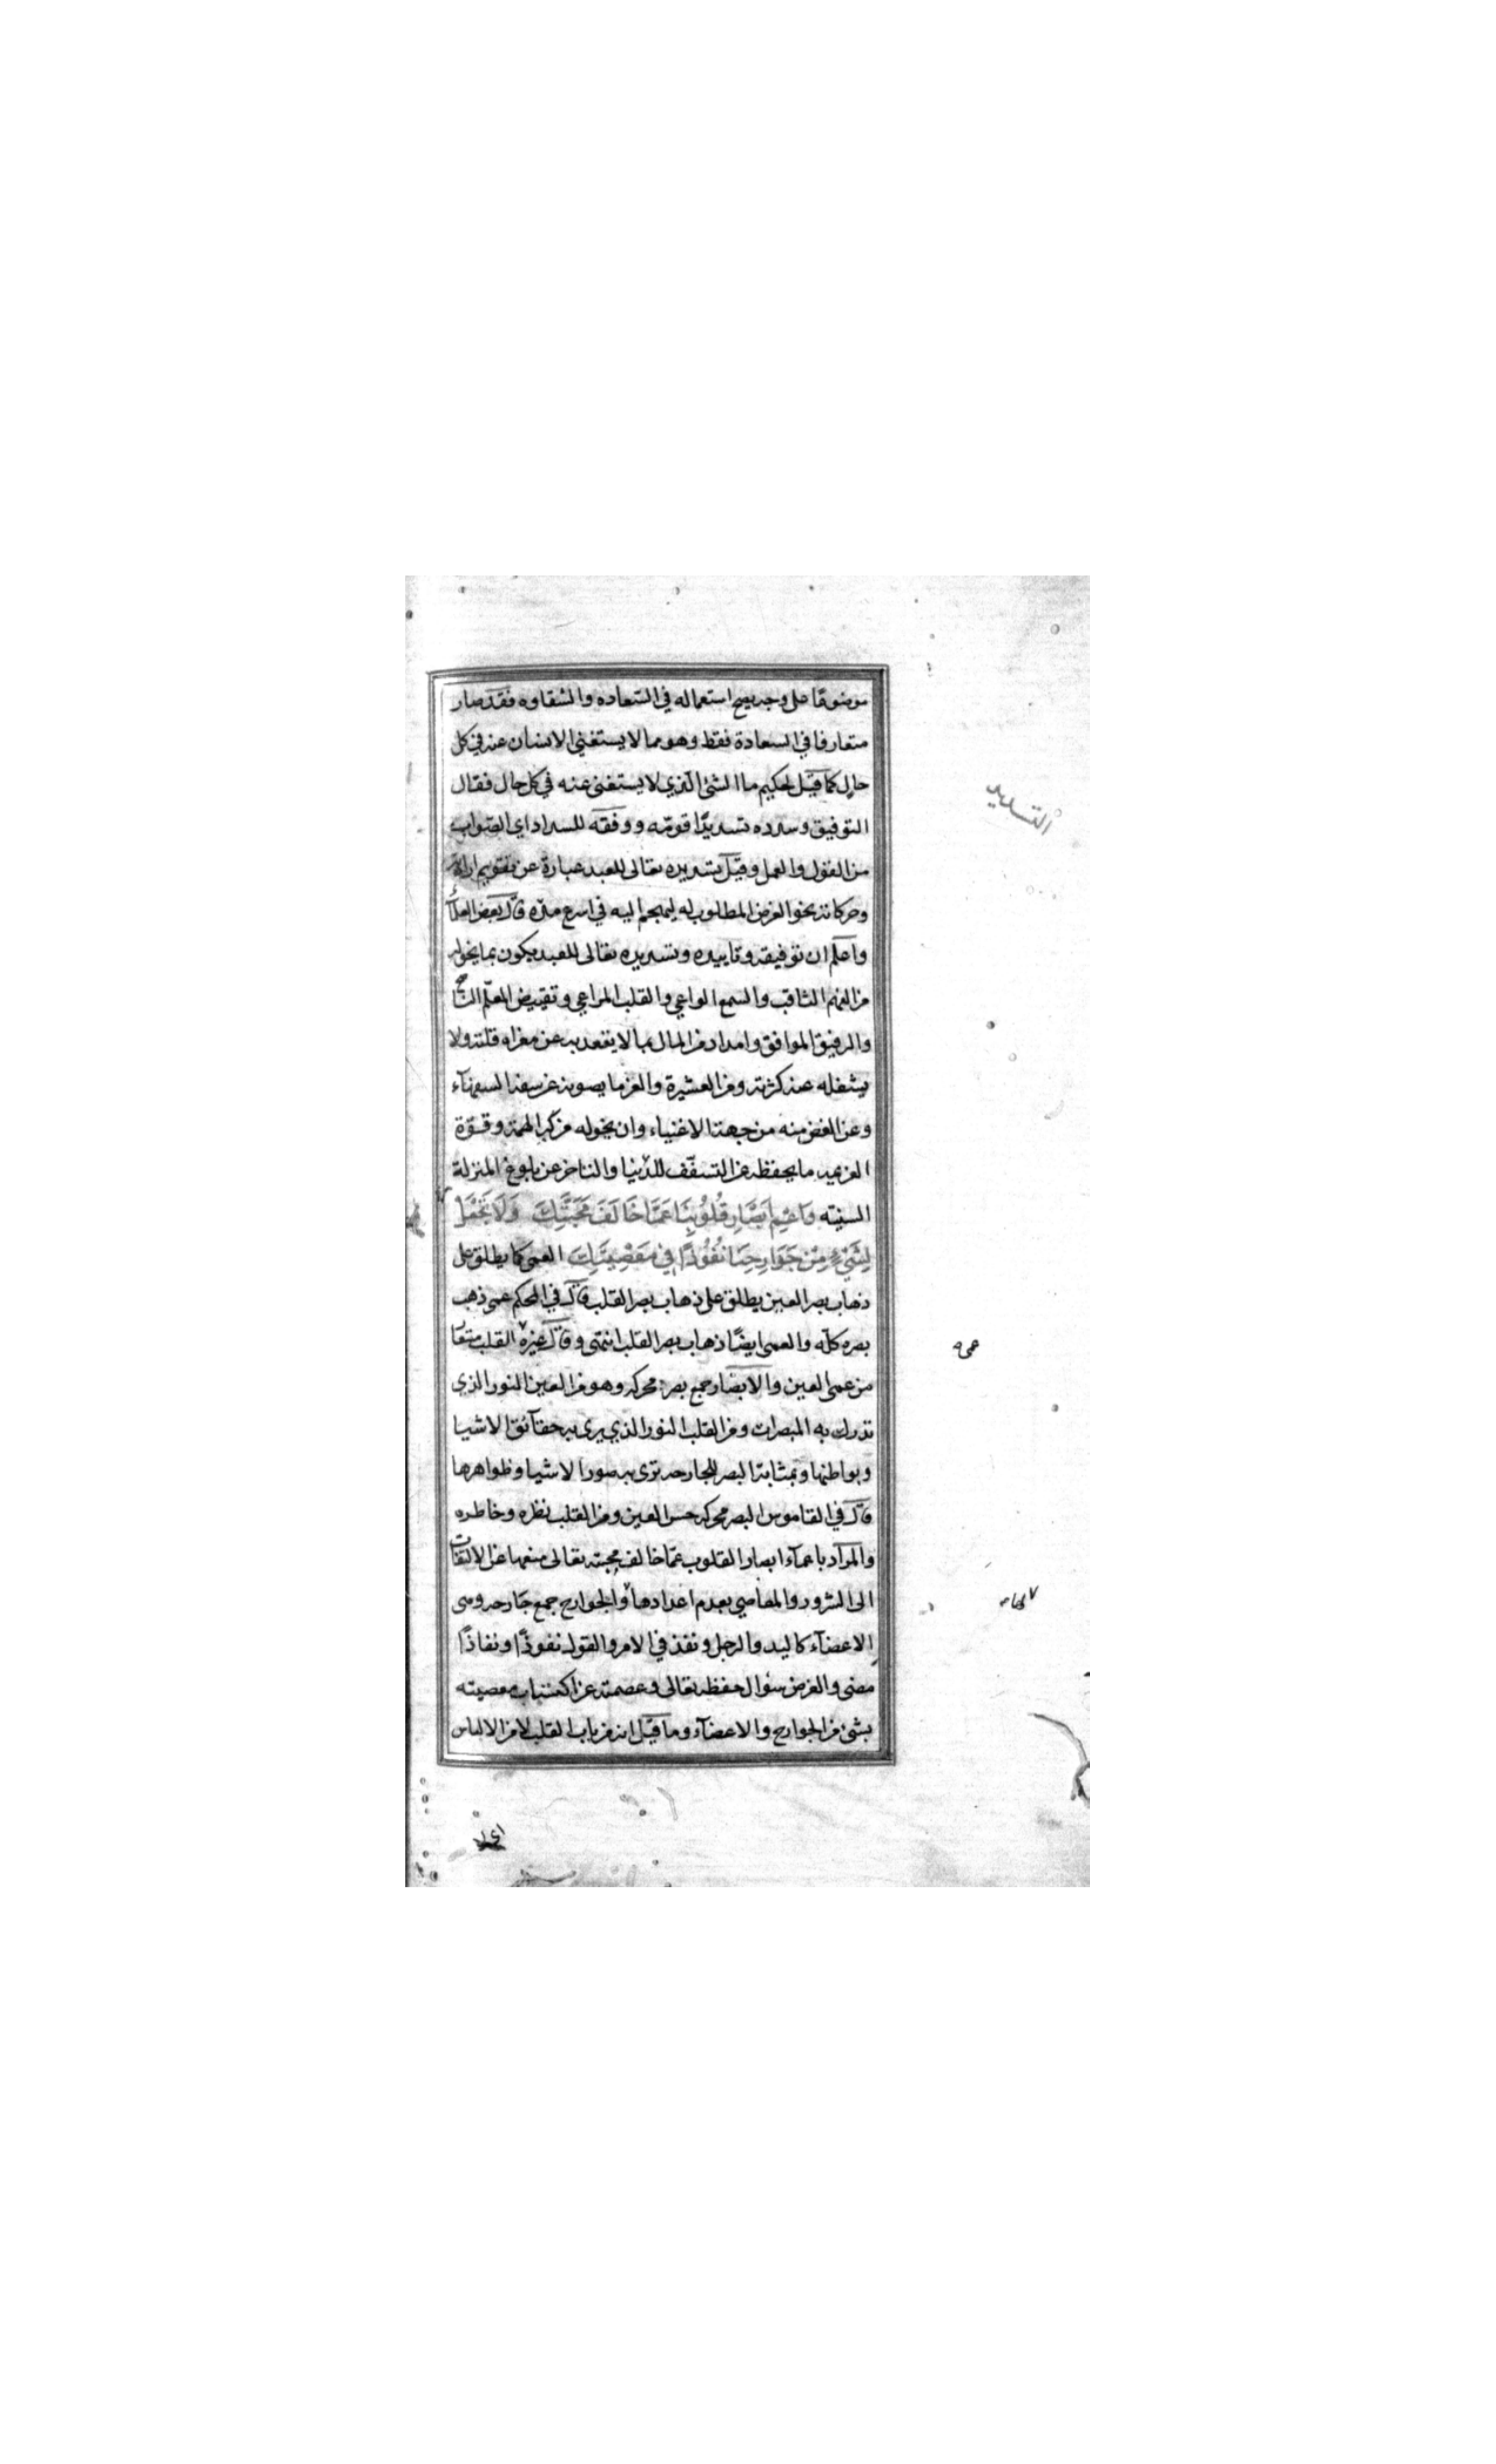 موضوعًا على وجه يصح استعماله في السعاده والشقاوه فقد صار
متعارفا في السعادة فقط وهو مما لا يستغني الانسان عنه في كل
حال كما قيل لحكيم ما الشئ الذي لا يستغنى عنه في كل حال فقال
التوفيق وسدده تسديدًا قومه ووفقه للسداد اي الصواب
من القول والعمل وقيل تسديده تعالى للعبد عبارة عن تقويم ارادته
وحركاته نحو الغرض المطلوب له ليهجم اليه في اسرع مده قال بعض العلماء
واعلم ان توفيقه وتاييده وتسديده تعالى للعبد يكون بما يخوله
من الفهم الثاقب والسمع الواعي والقلب المراعي وتقييض المعلم الناصح
والرفيق الموافق وامداد من المال بما لا يقعد به عن مغزاه قلته ولا
يشغله عنه كثرته ومن العشيرة والعز ما يصونه عن سفه السفهاء
وعن الغض منه من جهة الاغنياء وان يخوله من كبر الهمة وقوة
العزيمه ما يحفظه عن التسفف للدنيا والتاخر عن بلوغ المنزلة
السنيته وَاعْمِ اَبْصَارَ قُلُوبِنَا عَمَّا خَالَفَ مَحَبَّتَكَ وَلَا تَجْعَلْ
لِشَيْءٍ مِنْ جَوَارِحِنَا نُفُوذًا فِي مَعْصِيَتِكَ العمى كما يطلق على
ذهاب بصر العين يطلق على ذهاب بصر القلب قال في المحكم عمى ذهب
بصره كله والعمى ايضًا ذهاب بصر القلب انتهى وقال غيره القلب متعار
من عمى العين والابصار جمع بصر محركه وهو من العين النور الذي
تدرك به المبصرات ومن القلب النور الذي يرى به حقآئق الاشيا
وبواطنها وبمثابة البصر للجارحه ترى به صور الاشيا وظواهرها
قال في القاموس البصر محركه حس العين ومن القلب نظره وخاطره
والمراد باعمآء ابصار القلوب عمّا خالف محبته تعالى منعها عن الالتفات
الى الشرور والمعاصي بعدم اعدادها والجوارح جمع جارحه وهى
الاعضآء كاليد والرجل ونفذ في الامر والقول نفوذًا ونفاذًا
مضى والغرض سؤال حفظه تعالى وعصمته عن اكتساب معصيته
بشئ من الجوارح والاعضآء وما قيل انه من باب القلب لا من الالباس
التسديد
عمى